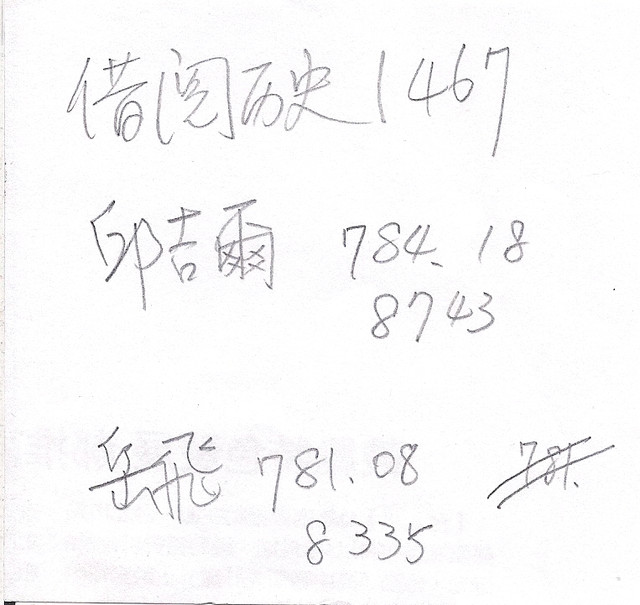 借阅历史1467
邱吉爾 784.18
8743
岳飛 781.08 781.
8335